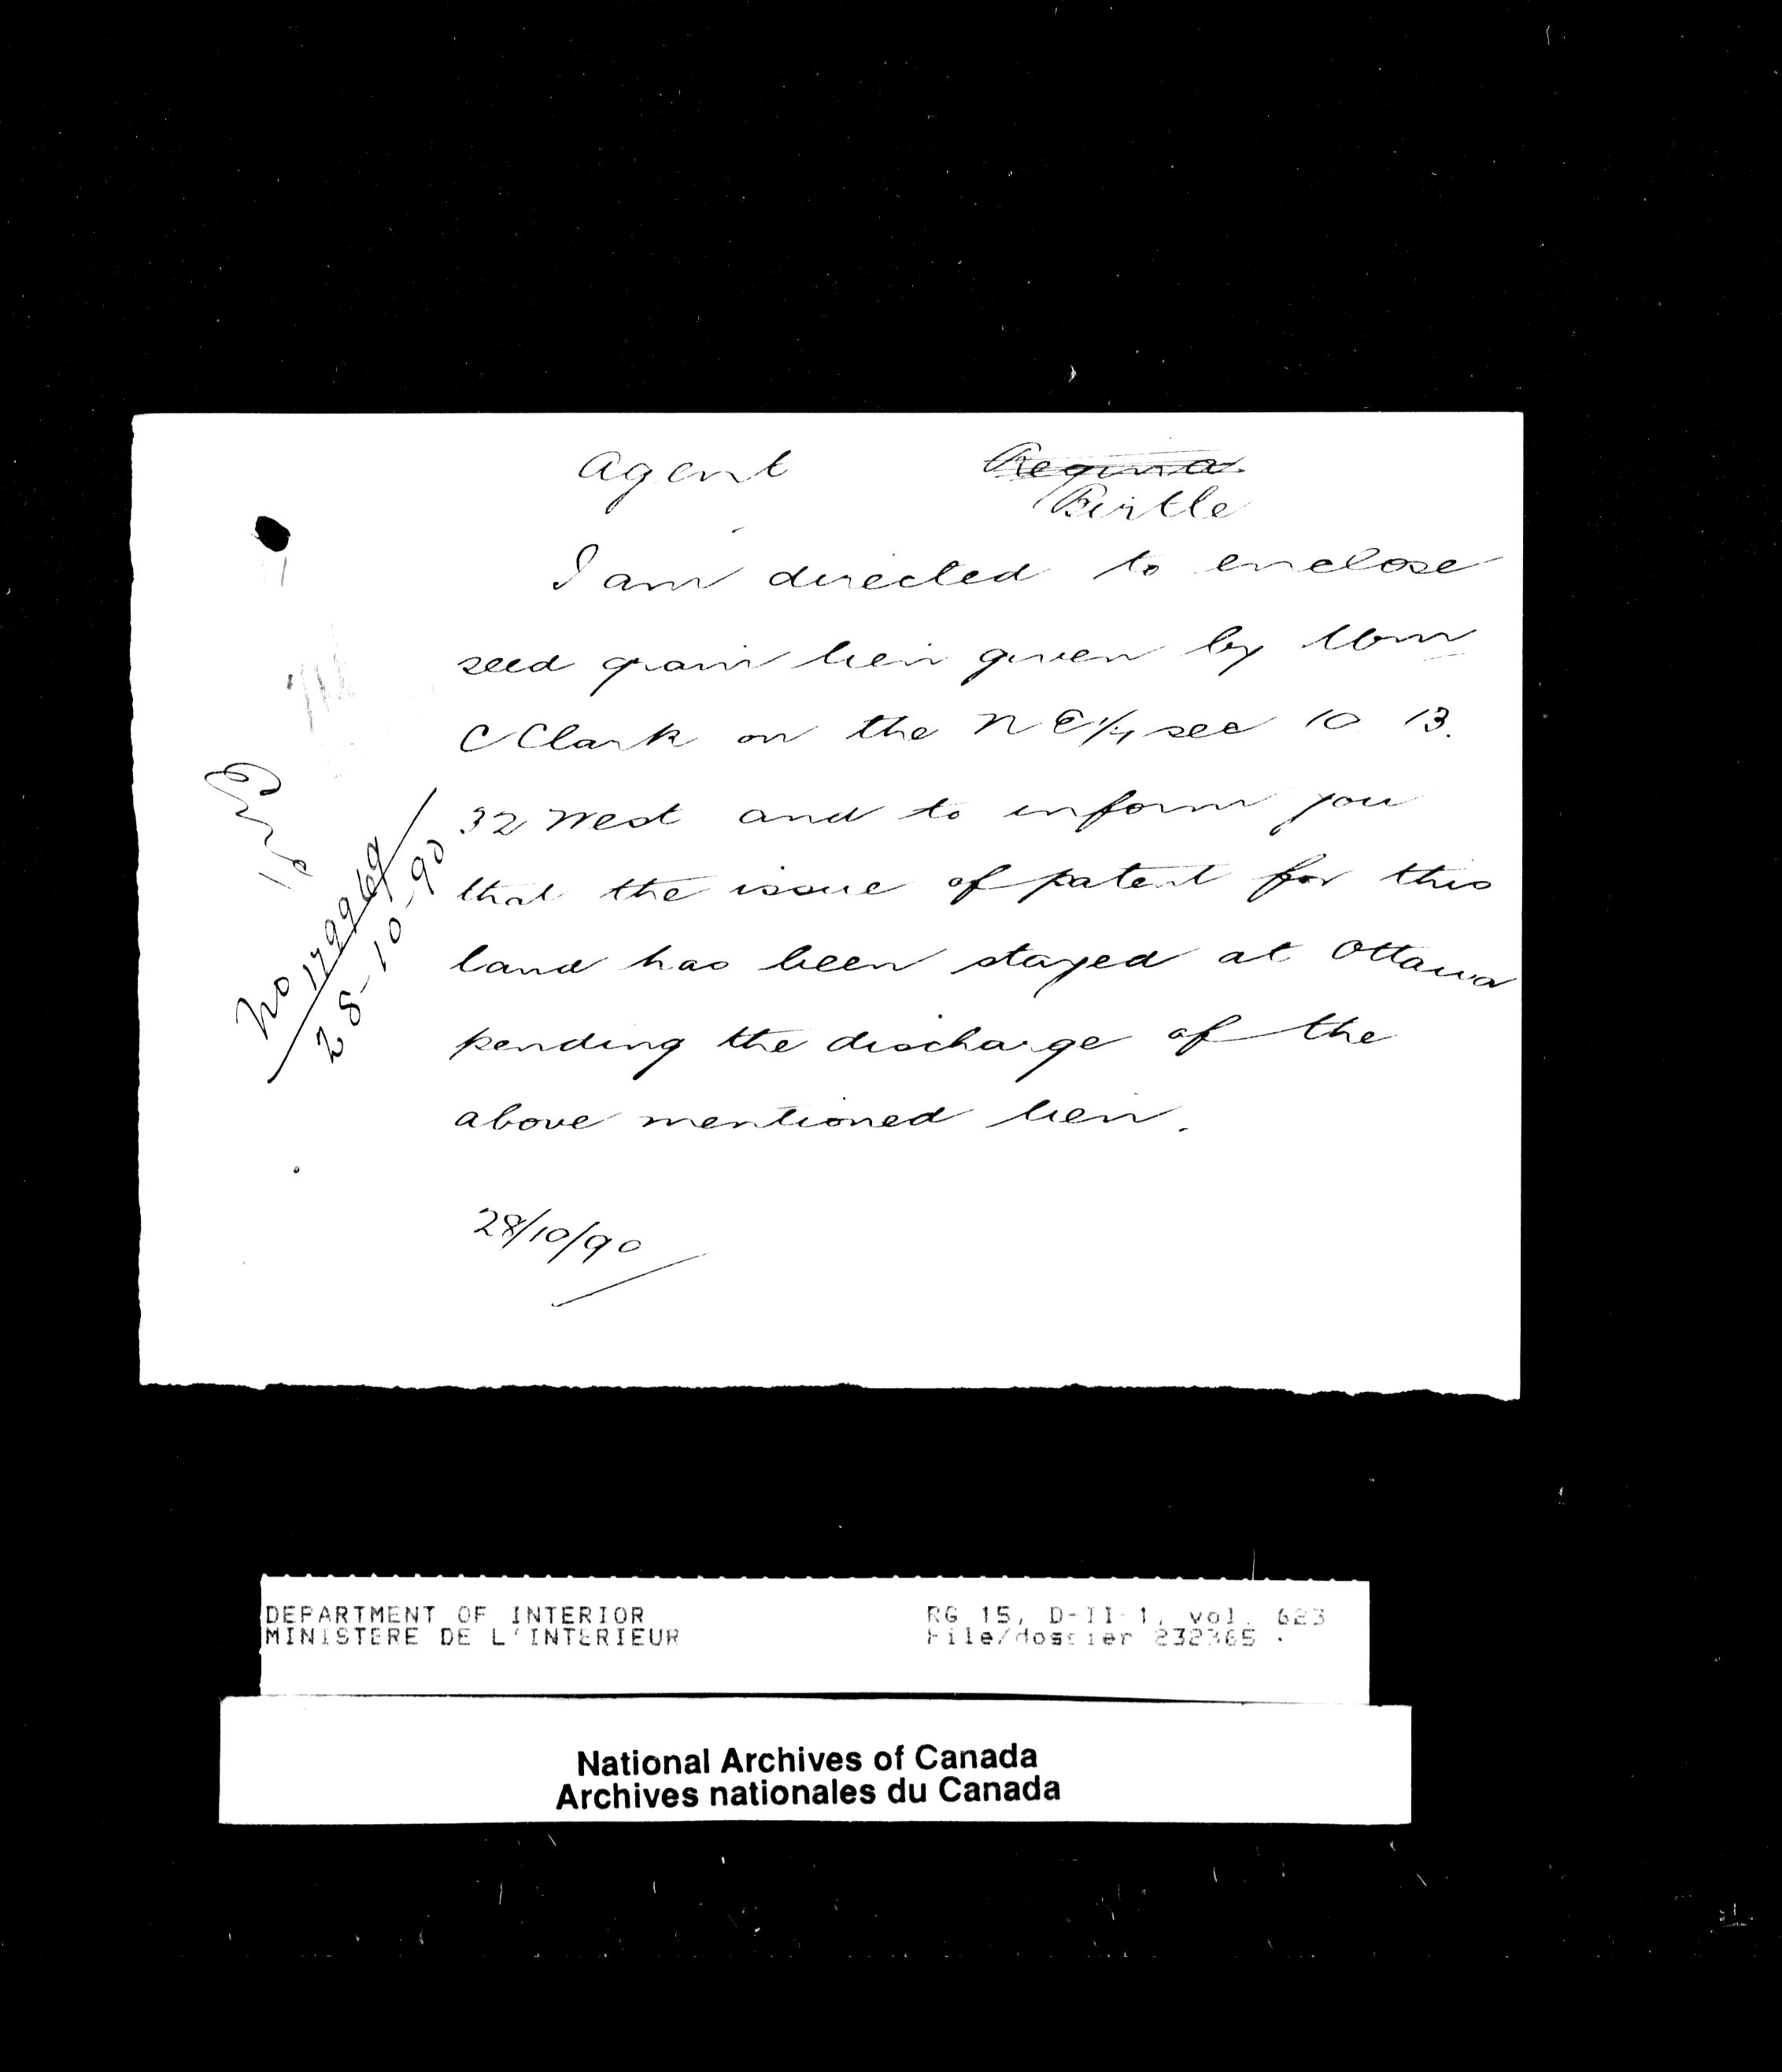 Agent Regina
Birtle
I am directed to enclose
seed grain lien given by Wm
C Clark on the N E 1/4 sec 10 13.
32 West and to inform you
that the issue of patent for this
land has been stayed at Ottawa
pending the discharge of the
above mentioned lien.
28/10/90
No 179969
28-10-90
DEPARTMENT OF INTERIOR
MINISTERE DE L'INTERIEUR
RG 15, D-II-1, vol. 623
File/dossier 232365
National Archives of Canada
Archives nationales du Canada